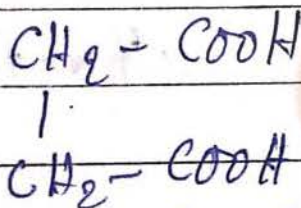 CH2 - COOH
|
CH2 - COOH